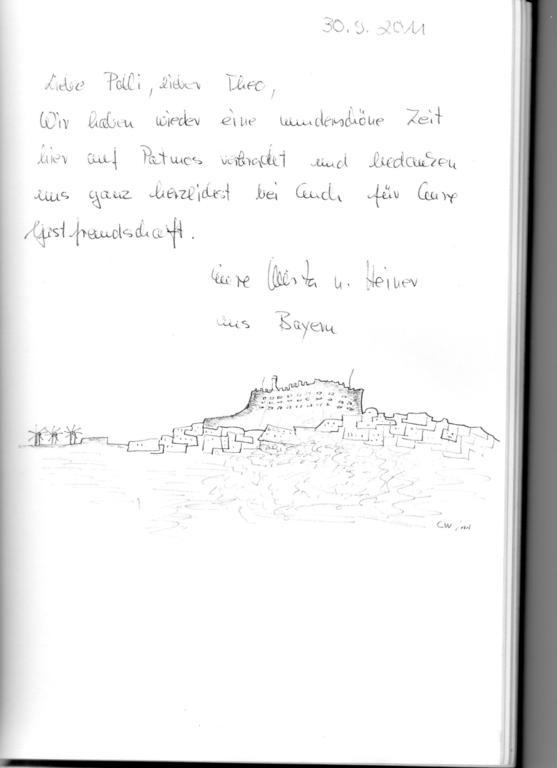 30.9.2011
Liebe Polli, lieber Theo,
Wir haben wieder eine wunderschöne Zeit
hier auf Patmos verbracht und bedanken
uns ganz herzlichst bei Euch für Eure
Gastfreundschaft.
Eure Christa u. Heiner
aus Bayern
CW